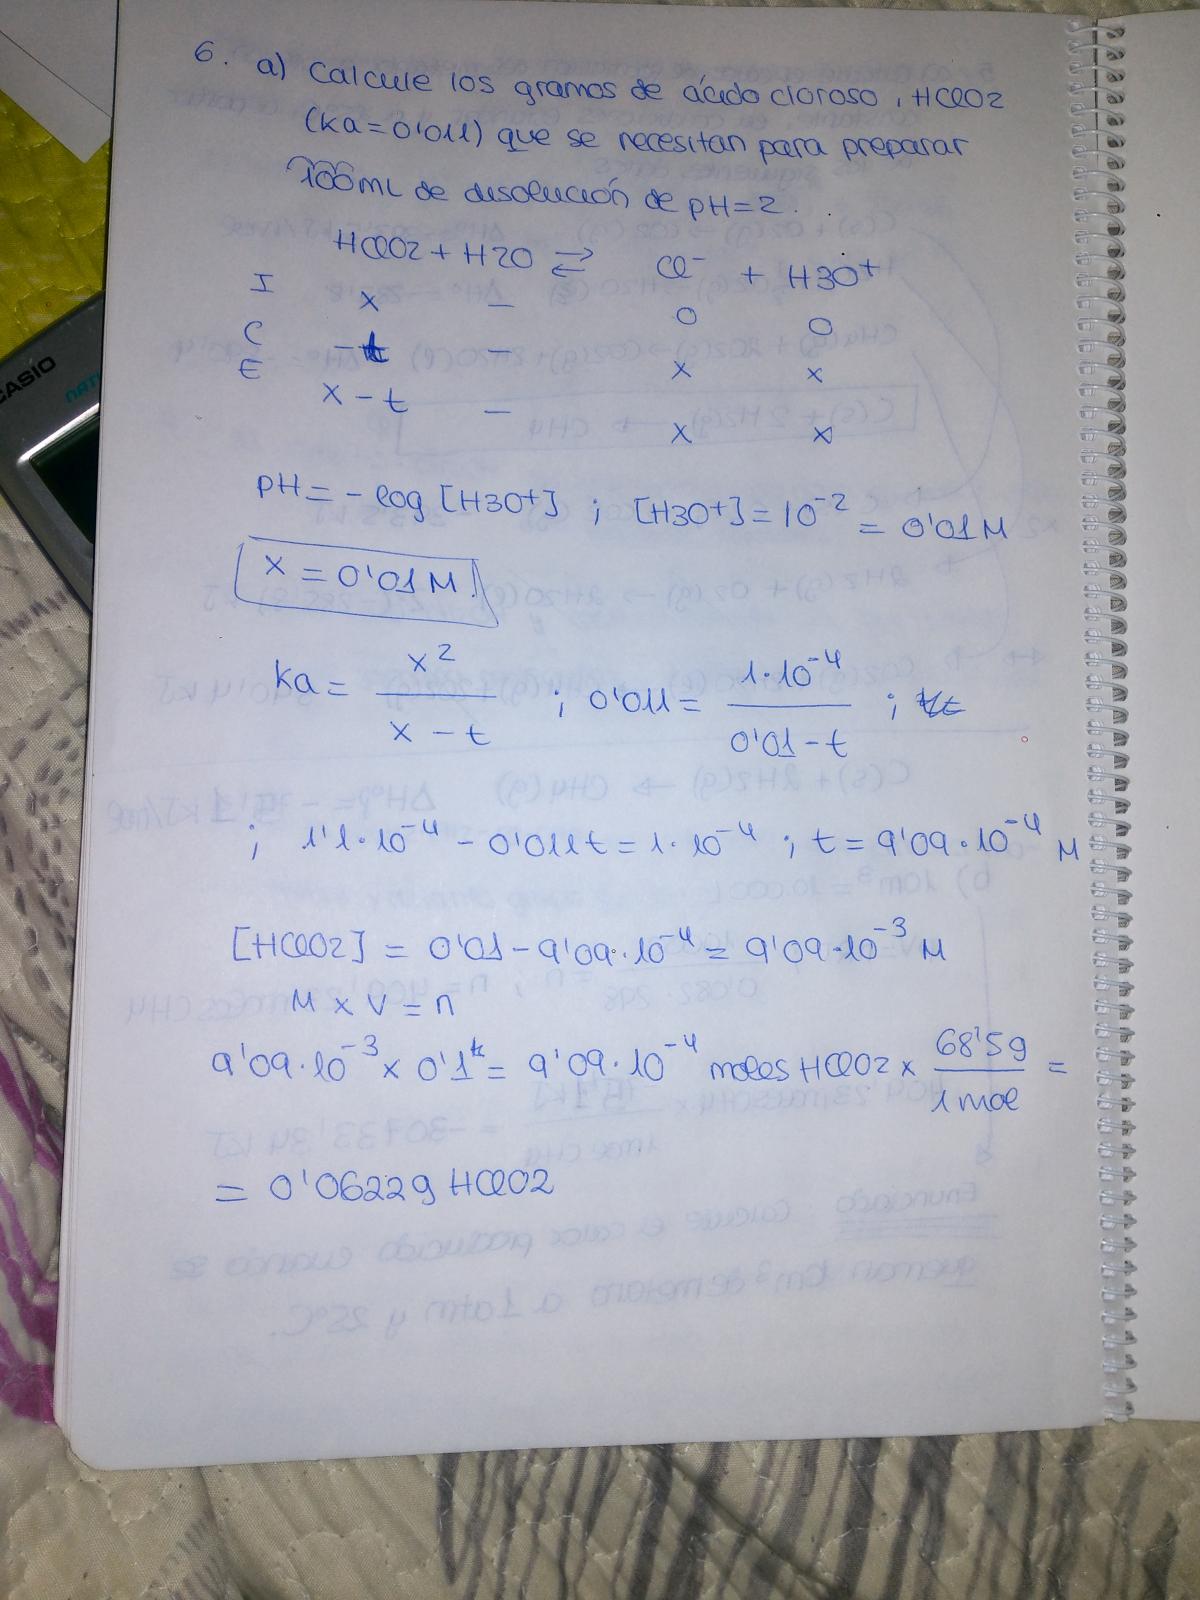 6. a) Calcule los gramos de ácido cloroso, HClO2
(Ka = 0'011) que se necesitan para preparar
100mL de disolución de pH = 2.
HClO2 + H2O ⇌ Cl⁻ + H3O+
I x — 0 0
C -t — x x
E x - t — x x
pH = - log [H3O+] ; [H3O+] = 10⁻² = 0'01 M
x = 0'01 M.
Ka = x² / x - t ; 0'011 = 1·10⁻⁴ / 0'01 - t ;
; 1'1·10⁻⁴ - 0'011t = 1·10⁻⁴ ; t = 9'09·10⁻⁴ M
[HClO2] = 0'01 - 9'09·10⁻⁴ = 9'09·10⁻³ M
M x V = n
9'09·10⁻³ x 0'1 = 9'09·10⁻⁴ moles HClO2 x 68'5g / 1 mol =
= 0'0622g HClO2
CASIO